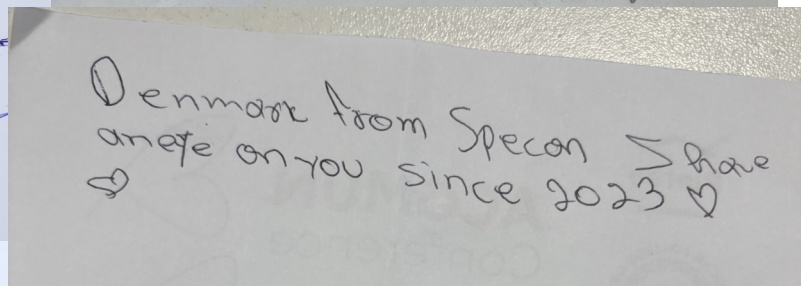 Denmark from Specon I have
an eye on you since 2023 ♡
♡